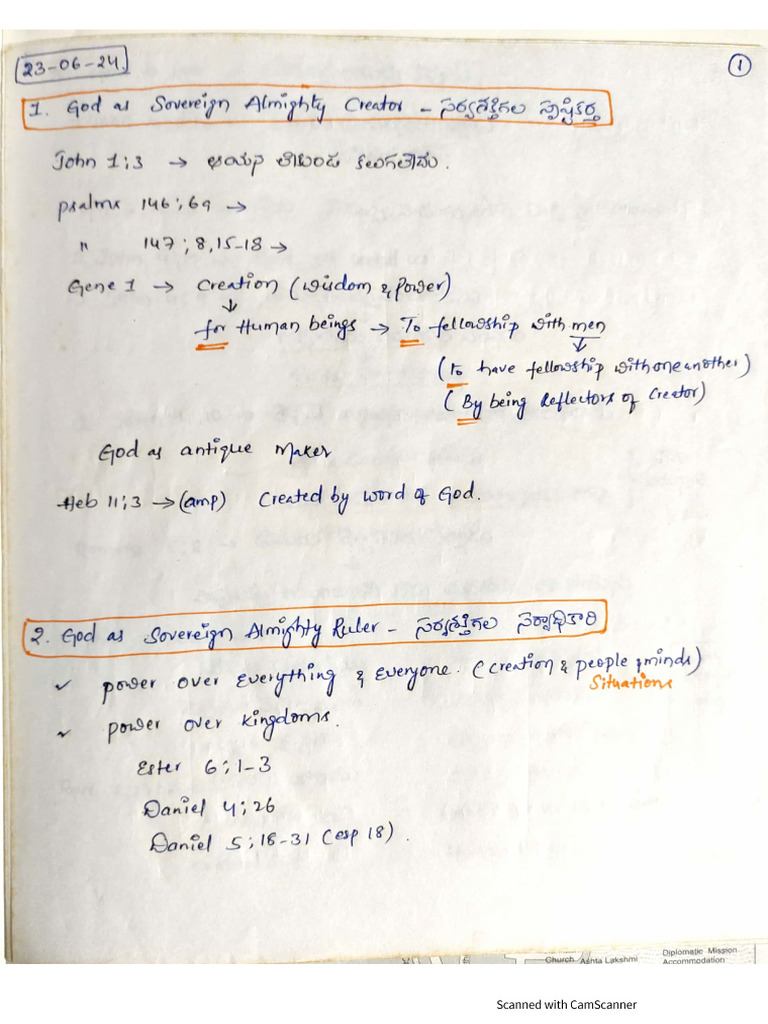 23-06-24.
1
1. God as Sovereign Almighty Creator - సర్వశక్తిగల సృష్టికర్త
John 1:3 → ఆయన లేకుండ కలుగలేదు.
psalms 146:6a →
" 147:8,15-18 →
Gene 1 → Creation (wisdom & power)
↓
for Human beings → To fellowship with men
↓
(to have fellowship with one another)
(By being Reflectors of Creator)
God as antique Maker
Heb 11:3 → (amp) Created by word of God.
2. God as Sovereign Almighty Ruler - సర్వశక్తిగల సర్వాధికారి
✓ power over Everything & Everyone. (creation & people & minds)
Situations
✓ power over kingdoms.
Ester 6:1-3
Daniel 4:26
Daniel 5:18-31 (esp 18).
Church Ashta Lakshmi
Diplomatic Mission
Accommodation
Scanned with CamScanner